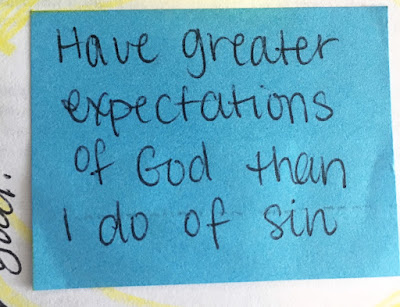 Have greater
expectations
of God than
I do of sin